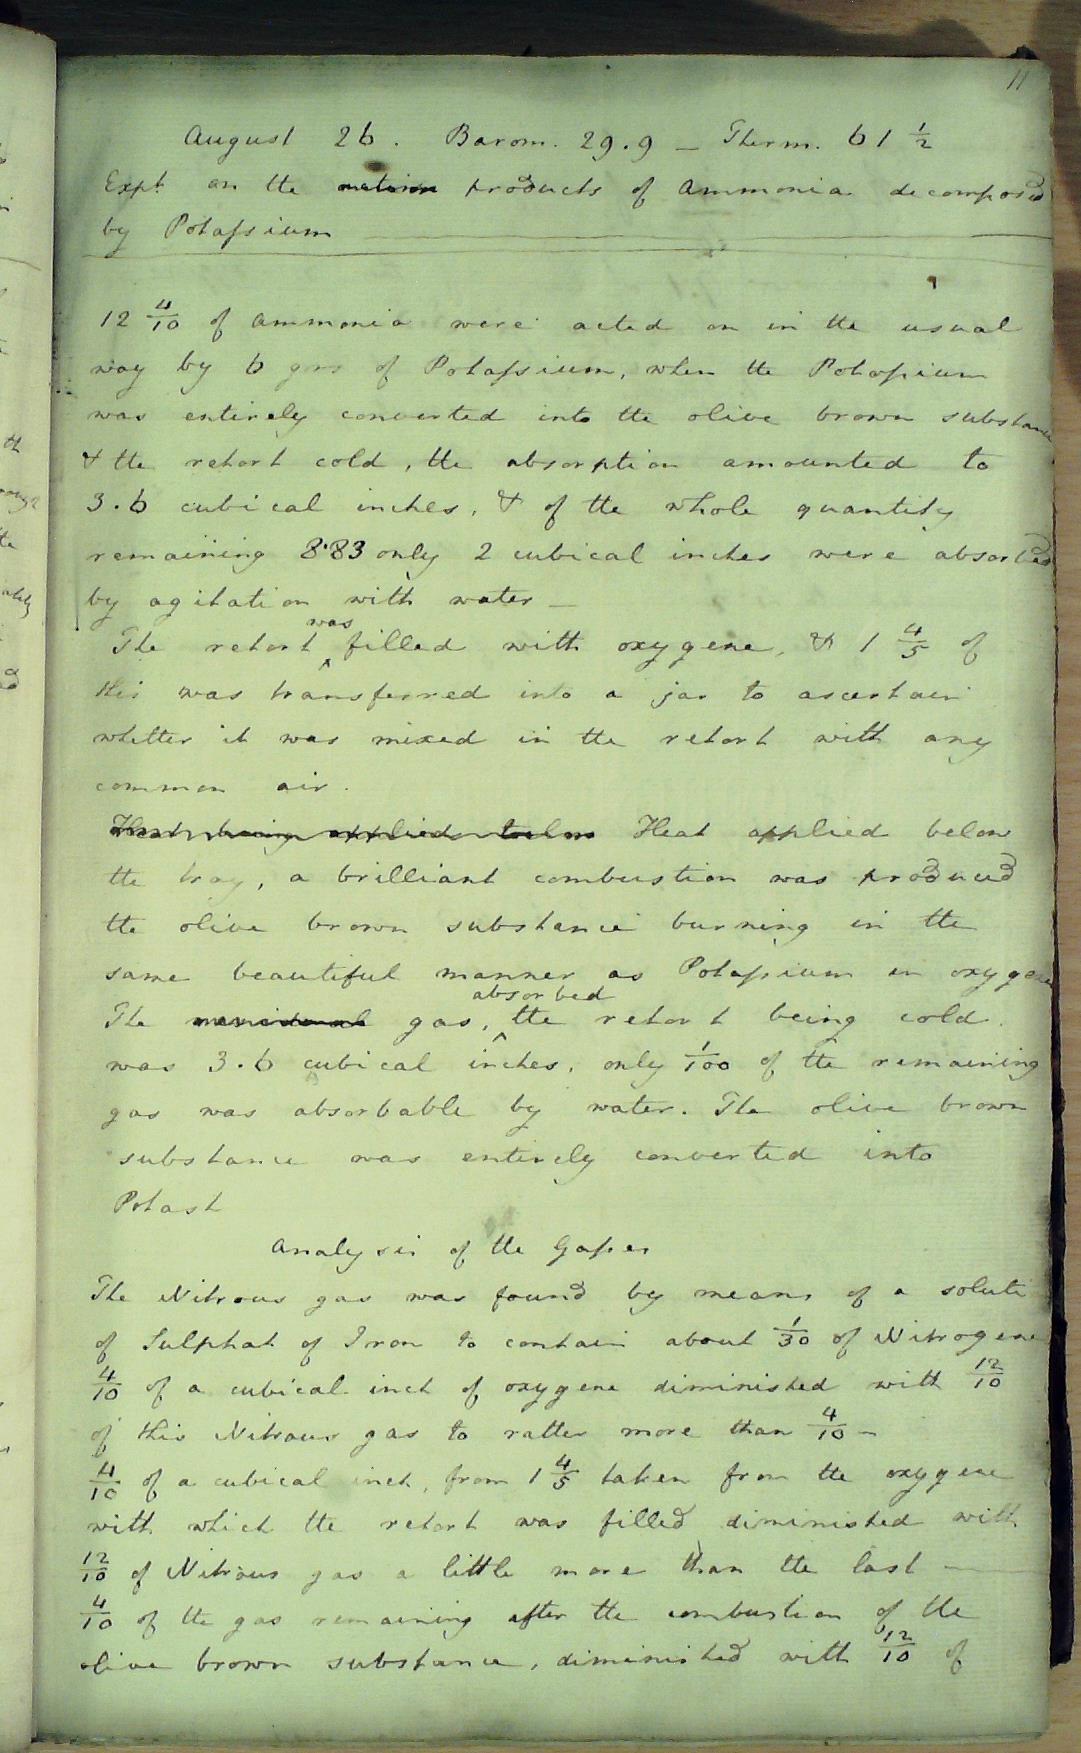 11
August 26. Barom. 29.9 — Therm. 61 1/2
Expt. on the action products of Ammonia decomposed
by Potassium
12 4/10 of Ammonia were acted on in the usual
way by 6 grs of Potassium, when the Potassium
was entirely converted into the olive brown substance
& the retort cold, the absorption amounted to
3.6 cubical inches, & of the whole quantity
remaining 8.83 only 2 cubical inches were absorbed
by agitation with water —
The retort was filled with oxygene, & 1 4/5 of
this was transferred into a jar to ascertain
whether it was mixed in the retort with any
common air.
Heat being applied below Heat applied below
the tray, a brilliant combustion was produced
the olive brown substance burning in the
same beautiful manner as Potassium in oxygene
The gas, absorbed the retort being cold.
was 3.6 cubical inches, only 1/100 of the remaining
gas was absorbable by water. The olive brown
substance was entirely converted into
Potash
Analysis of the Gases
The Nitrous gas was found by means of a soluti
of Sulphat of Iron to contain about 1/30 of Nitrogene
4/10 of a cubical inch of oxygene diminished with 12/10
of this Nitrous gas to rather more than 4/10 —
4/10 of a cubical inch, from 1 4/5 taken from the oxygene
with which the retort was filled diminished with
12/10 of Nitrous gas a little more than the last —
4/10 of the gas remaining after the combustion of the
olive brown substance, diminished with 12/10 of